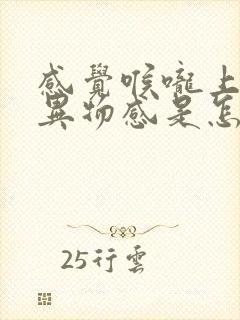 感覺喉嚨上
異物感是怎
25行雲